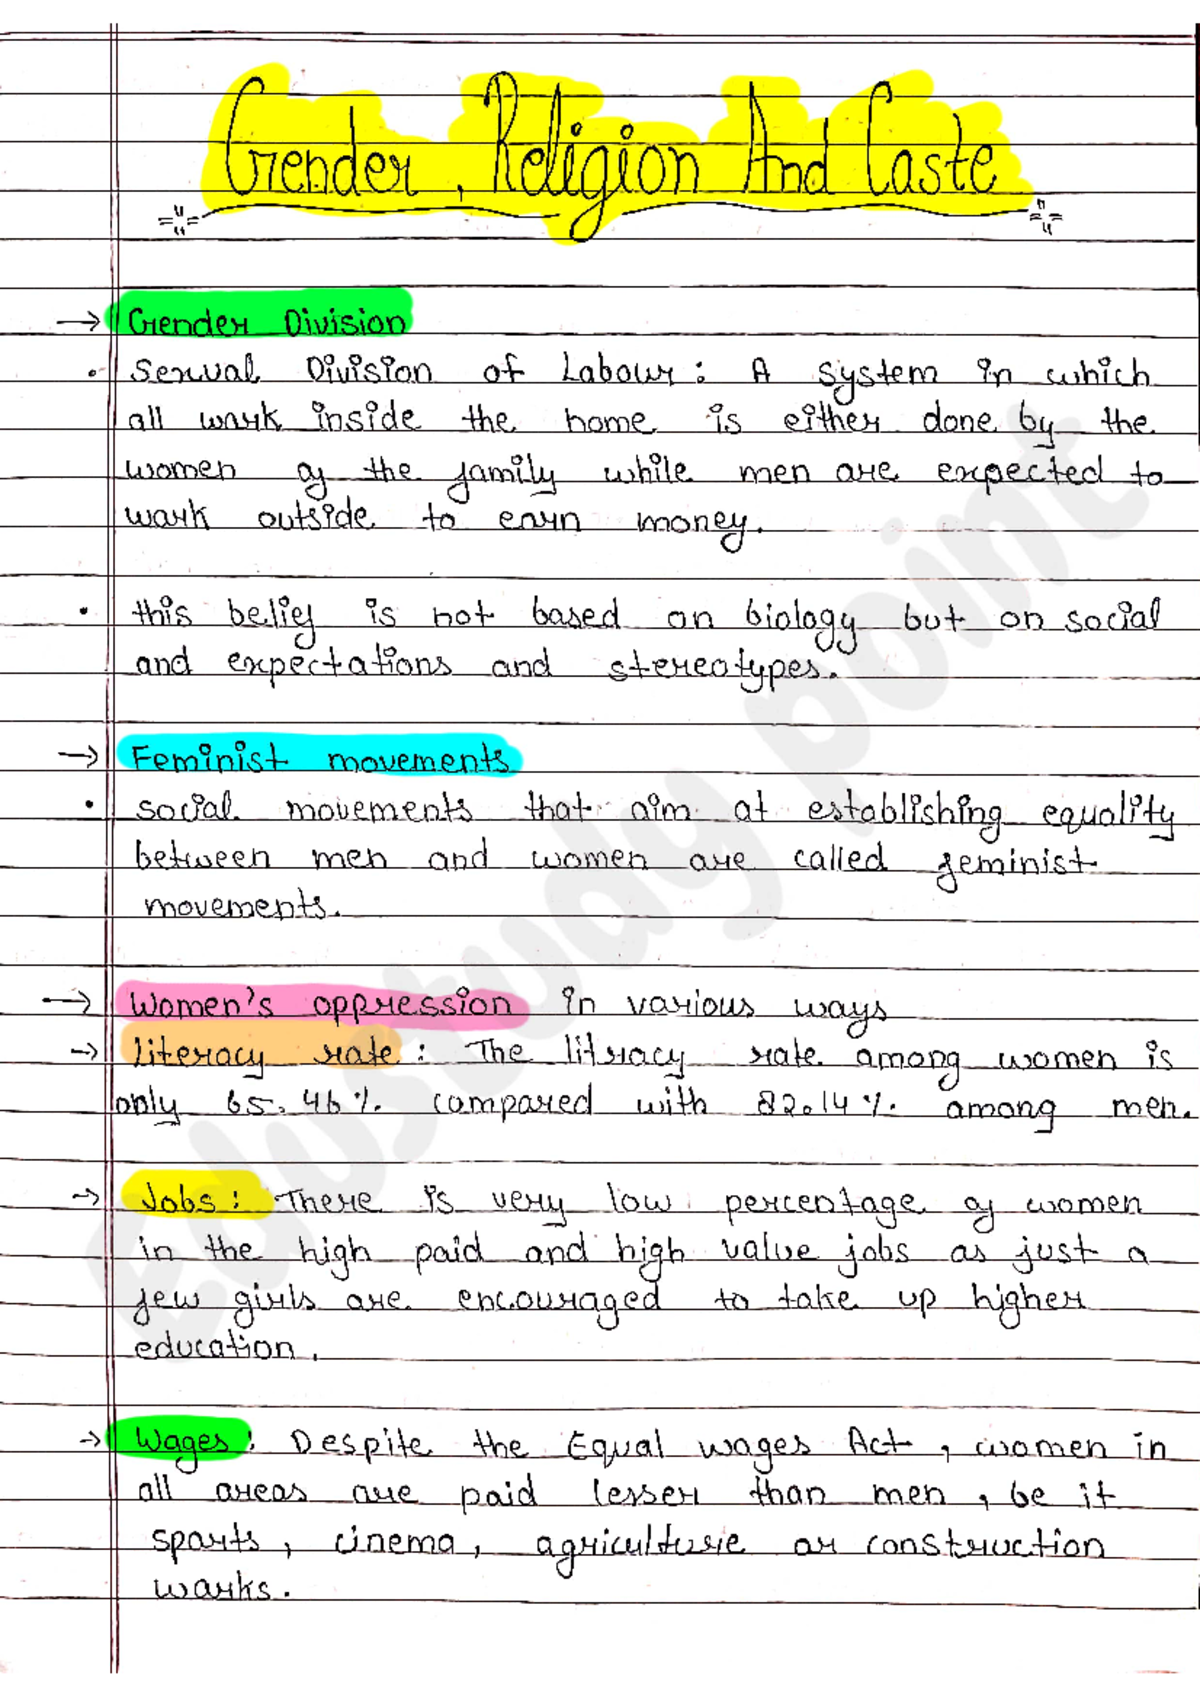 Gender, Religion And Caste
→ Gender Division
• Sexual Division of Labour: A system in which
all work inside the home is either done by the
women of the family while men are expected to
work outside to earn money.
• this belief is not based on biology but on social
and expectations and stereotypes.
→ Feminist movements
• social movements that aim at establishing equality
between men and women are called feminist
movements.
→ Women's oppression in various ways
→ literacy rate: The litracy rate among women is
only 65.46%. compared with 82.14%. among men.
→ Jobs: There is very low percentage of women
in the high paid and high value jobs as just a
few girls are encouraged to take up higher
education.
→ Wages: Despite the Equal wages Act, women in
all areas are paid lesser than men, be it
sports, cinema, agriculture or construction
works.
Edustudy point